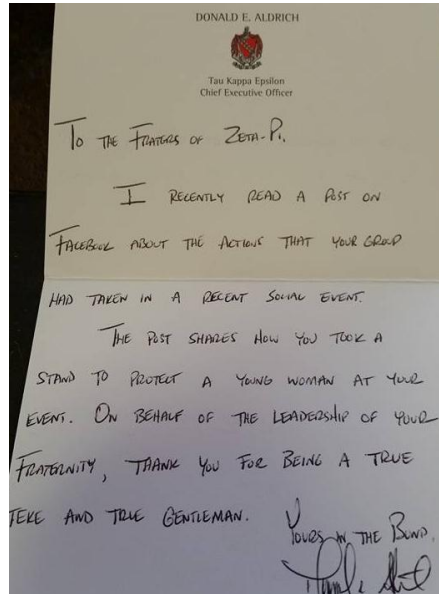 DONALD E. ALDRICH
Tau Kappa Epsilon
Chief Executive Officer
TO THE FRATERS OF ZETA-PI.
I RECENTLY READ A POST ON
FACEBOOK ABOUT THE ACTIONS THAT YOUR GROUP
HAD TAKEN IN A RECENT SOCIAL EVENT.
THE POST SHARES HOW YOU TOOK A
STAND TO PROTECT A YOUNG WOMAN AT YOUR
EVENT. ON BEHALF OF THE LEADERSHIP OF YOUR
FRATERNITY, THANK YOU FOR BEING A TRUE
TEKE AND TRUE GENTLEMAN.
YOURS IN THE BOND,